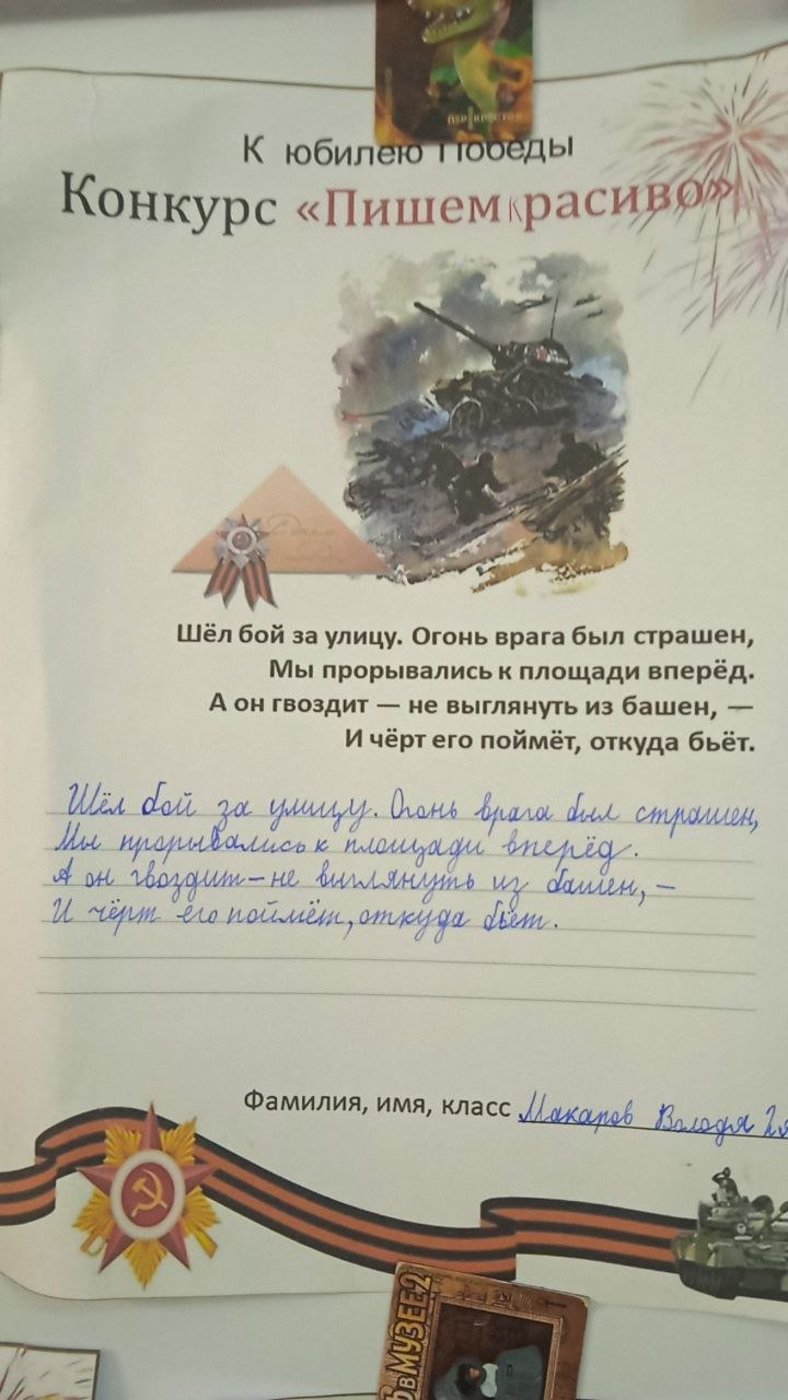 ПЕРЕКРЁСТОК
К юбилею Победы
Конкурс «Пишем красиво»
Шёл бой за улицу. Огонь врага был страшен,
Мы прорывались к площади вперёд.
А он гвоздит — не выглянуть из башен, —
И чёрт его поймёт, откуда бьёт.
Шёл бой за улицу. Огонь врага был страшен,
Мы прорывались к площади вперёд.
А он гвоздит – не выглянуть из башен, –
И чёрт его поймёт, откуда бьёт.
Фамилия, имя, класс Макаров Володя 2я
В МУЗЕЕ 2